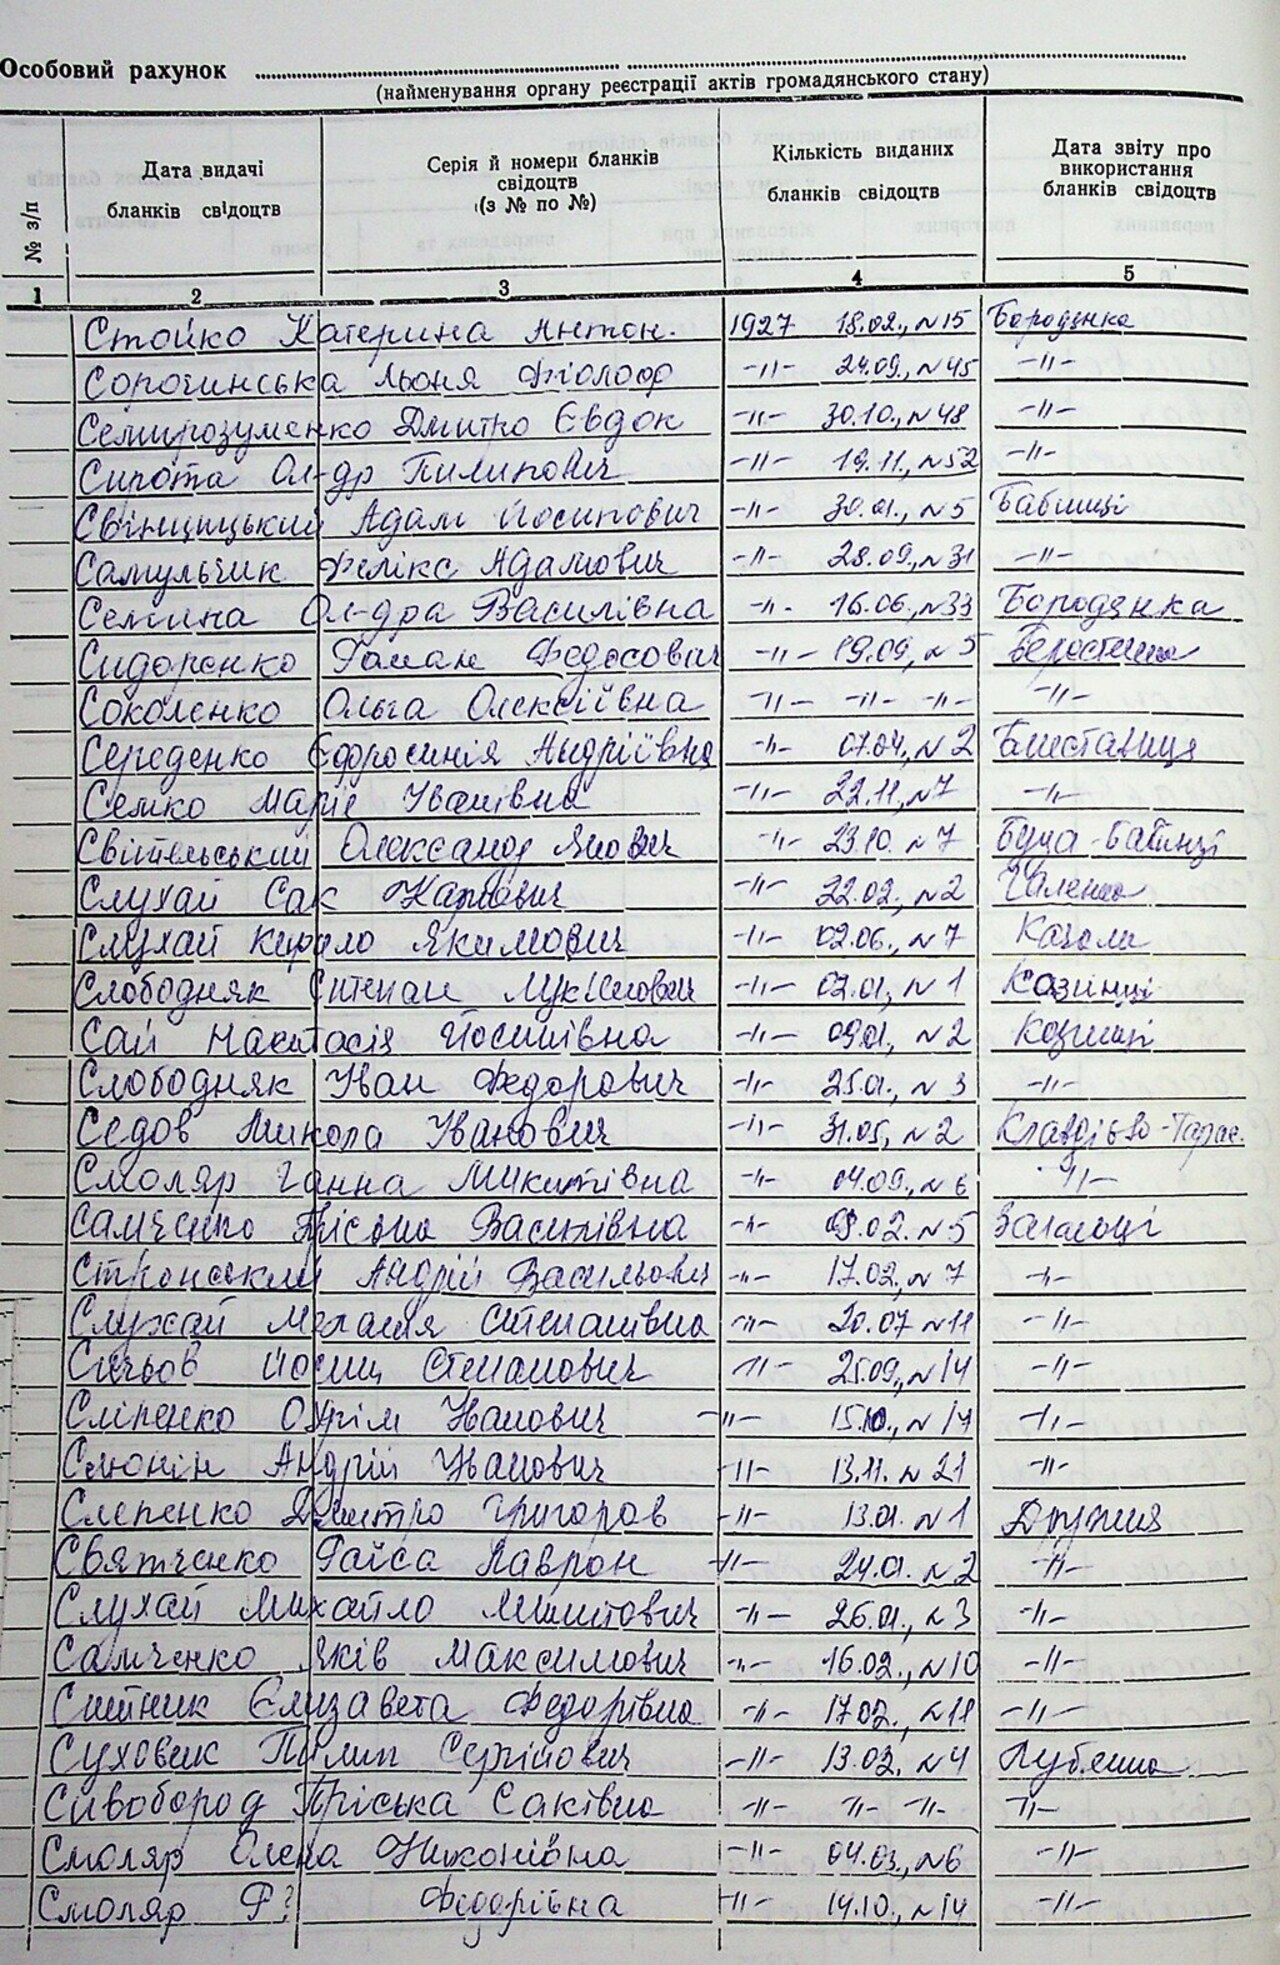 Особовий рахунок
(найменування органу реєстрації актів громадянського стану)
№ з/п
Дата видачі бланків свідоцтв
Серія й номери бланків свідоцтв (з № по №)
Кількість виданих бланків свідоцтв
Дата звіту про використання бланків свідоцтв
1 2 3 4 5
Стойко Катерина Антон. 1927 18.02., №15 Бородянка
Сорочинська Льоня Філоф -//- 24.09., №45 -//-
Семирозуменко Дмитро Євдок -//- 30.10., №48 -//-
Сирота Ол-др Пилипович -//- 19.11., №52 -//-
Свінціцький Адам Йосипович -//- 30.01., №5 Бабинці
Самульчик Фелікс Адамович -//- 28.09., №31 -//-
Семина Ол-дра Василівна -//- 16.06., №33 Бородянка
Сидоренко Роман Федосович -//- 19.09, №5
Соколенко Ольга Олексіївна -//- -//- -//- -//-
Середенко Єфросинія Андріївна -//- 07.04, №2 Блиставиця
Семко Марія Іванівна -//- 22.11, №7 -//-
Світельський Олександр Якович -//- 23.10. №7 Буча-Бабинці
Слухай Сак Карпович -//- 22.02., №2
Слухай Кирило Якимович -//- 02.06., №7 Качали
Слободняк Степан Лук'янович -//- 02.01, №1 Козинці
Сай Настасія Йосипівна -//- 09.01, №2 Козинці
Слободняк Іван Федорович -//- 25.01., №3 -//-
Седов Микола Іванович -//- 31.05, №2 Клавдієво-Тарас.
Смоляр Ганна Микитівна -//- 04.09., №6 -//-
Самченко Василівна -//- 09.02. №5 Загальці
Стронський Андрій Васильович -//- 17.02, №7 -//-
Слухай Меланія Степанівна -//- 20.07 №11 -//-
Йосип Степанович -//- 25.09., №14 -//-
Сліпенко Охрім Іванович -//- 15.10., №17 -//-
Сюнін Андрій Іванович -//- 13.11. №21 -//-
Слепенко Дмитро Григоров -//- 13.01. №1 Дружня
Святченко Раїса Лаврон -//- 24.01. №2 -//-
Слухай Михайло Микитович -//- 26.01., №3 -//-
Самченко Яків Максимович -//- 16.02., №10 -//-
Ситник Єлизавета Федорівна -//- 17.02., №11 -//-
Суховик Пилип Сергійович -//- 13.02. №4 Луб'янка
Сивобород Пріська Саківна -//- -//- -//- -//-
Смоляр Олена Никонівна -//- 04.03., №6 -//-
Смоляр Ф? Федорівна -//- 14.10., №14 -//-